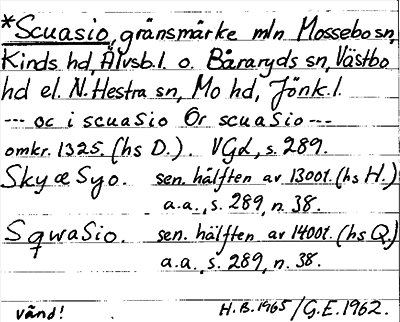 *Scuasio, gränsmärke mln Mossebo sn,
Kinds hd, Älvsb.l. o. Båraryds sn, Västbo
hd el. N. Hestra sn, Mo hd, Jönk.l.
--- oc i scuasio Or scuasio ---
omkr. 1325. (hs D.). VGL, s. 289.
SkyæSyo. sen. hälften av 1300t. (hs H.)
a.a., s. 289, n. 38.
SqwaSio. sen. hälften av 1400t. (hs Q.)
a.a., s. 289, n. 38.
vänd! H.B. 1965 / G.E. 1962.